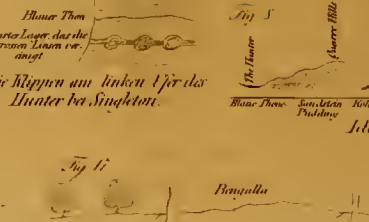 Blauer Thon
Lager, das die
grossen Linsen ver-
einigt
Klippen am linken Ufer des
Hunter bei Singleton.
Fig 8
The Hunter
Hills
Blauer Thon
Sandstein
Pudding
Fig
Bengalla